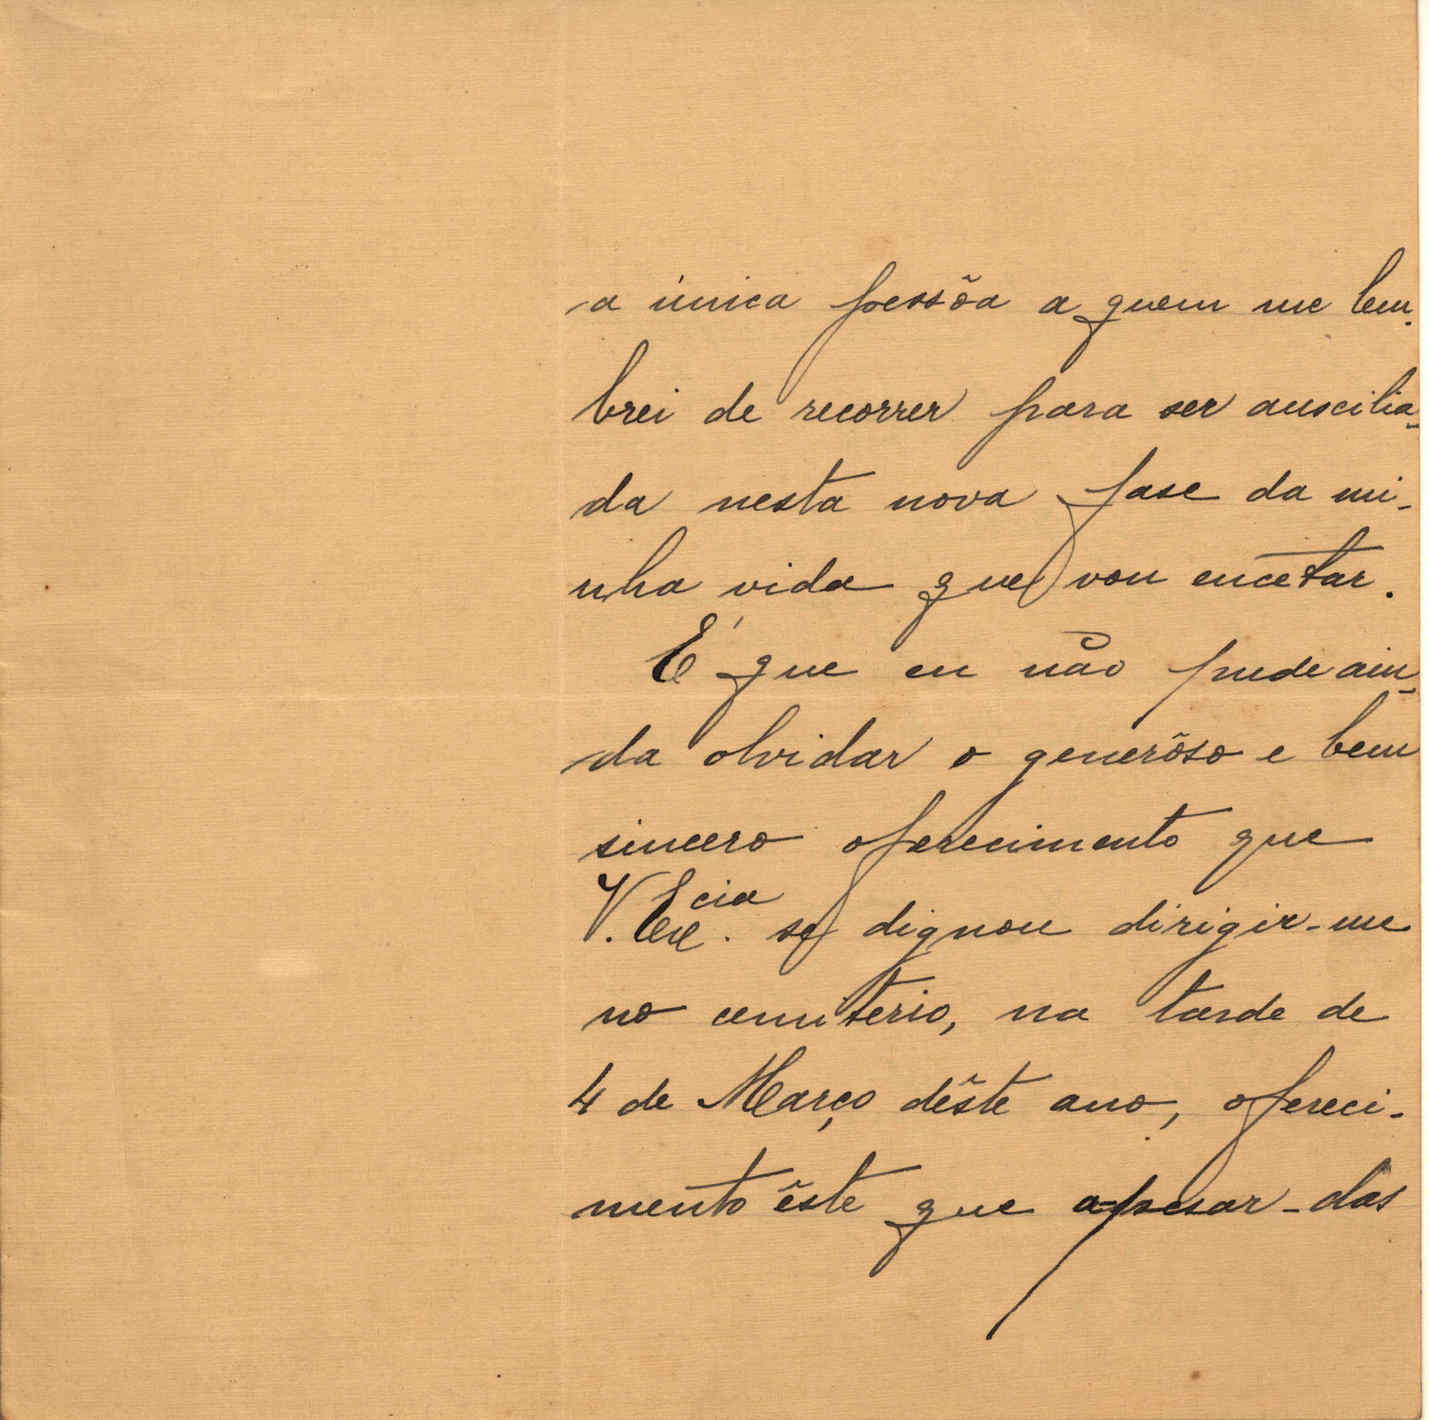 a única pessôa a quem me lem-
brei de recorrer para ser auscilia-
da nesta nova fase da mi-
nha vida que vou encetar.
É que eu não pude ain-
da olvidar o generôso e bem
sincero oferecimento que
V. Excia. se dignou dirigir-me
no cemiterio, na tarde de
4 de Março dêste ano, ofereci-
mento êste que a-pesar-das